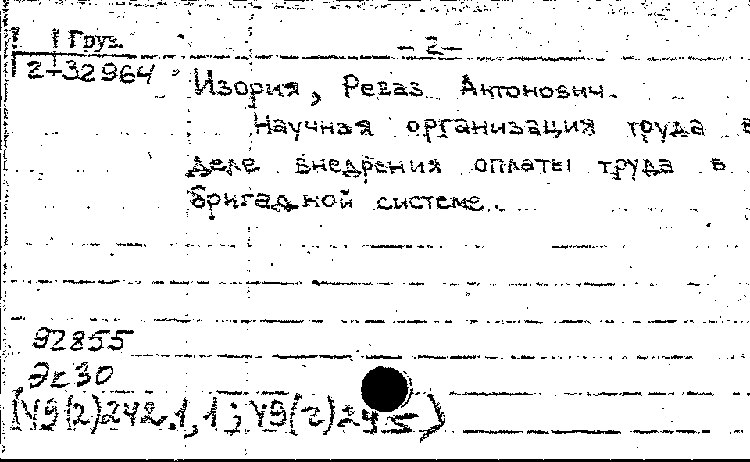 Груз.
- 2 -
2-32964
Изория, Реваз Антонович.
Научная организация труда в
деле внедрения оплаты труда в
бригадной системе.
92855
Эк30
(У9(2)242.1,1; У9(2)245)